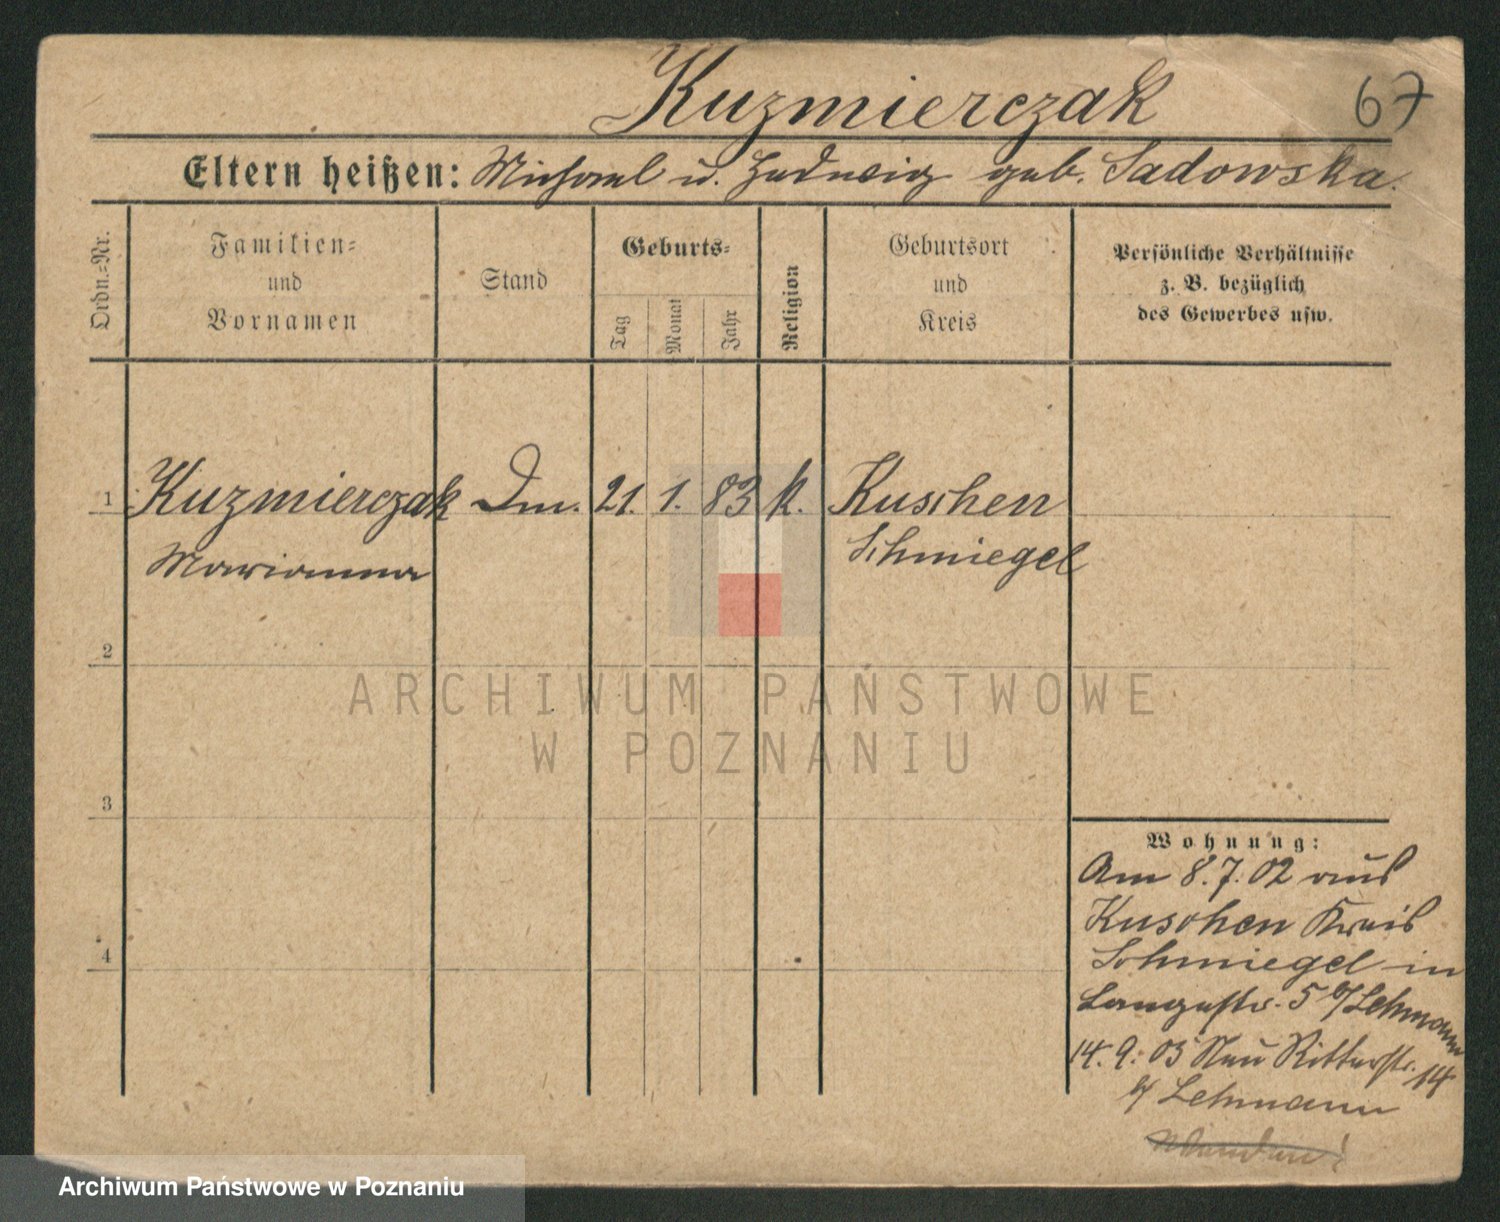 Kuzmierczak 67
Eltern heißen: Michael u. Hedwig geb. Sadowska.
Ordn.=Nr.
Familien=
und
Vornamen
Stand
Geburts=
Tag
Monat
Jahr
Religion
Geburtsort
und
Kreis
Persönliche Verhältnisse
z. B. bezüglich
des Gewerbes usw.
1 Kuzmierczak Dm. 21. 1. 83 k. Kuschen
Marianna Schmiegel
2
ARCHIWUM PAŃSTWOWE
W POZNANIU
3
Wohnung:
Am 8.7.02 aus
Kuschen Kreis
4 Schmiegel in
Langestr. 5 b/Lehmann
14.9.03 Neu Ritterstr. 14
b/ Lehmann
Archiwum Państwowe w Poznaniu